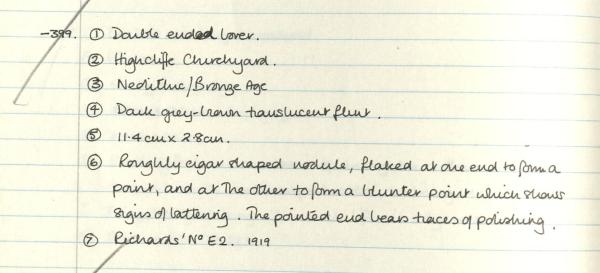 -399. ① Double ended borer.
② Highcliffe Churchyard.
③ Neolithic/Bronze Age
④ Dark grey-brown translucent flint.
⑤ 11.4cm x 2.8cm.
⑥ Roughly cigar shaped nodule, flaked at one end to form a
point, and at the other to form a blunter point which shows
signs of battering. The pointed end bears traces of polishing.
⑦ Richards' Nº E2. 1919